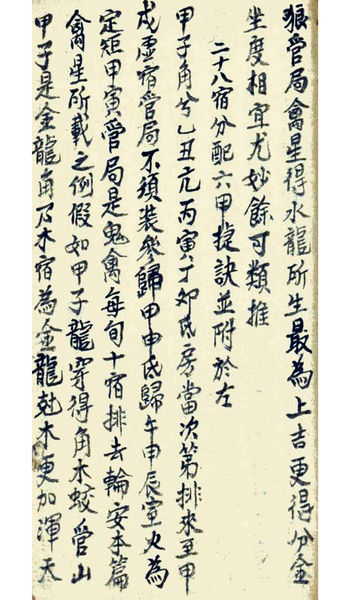 狼管局禽星得水龍所生最為上吉更得分金
坐度相宜尤妙餘可類推
二十八宿分配六甲捷訣並附於左
甲子角兮乙丑亢丙寅丁卯氐房當次第排來至甲
戌虛宿管局不須裝參歸甲申氐歸午甲辰室火為
定矩甲寅管局是鬼禽每旬十宿排去輪安本篇
禽星所載之例假如甲子龍穿得角木蛟管山
甲子是金龍角乃木宿為金龍尅木更加渾天